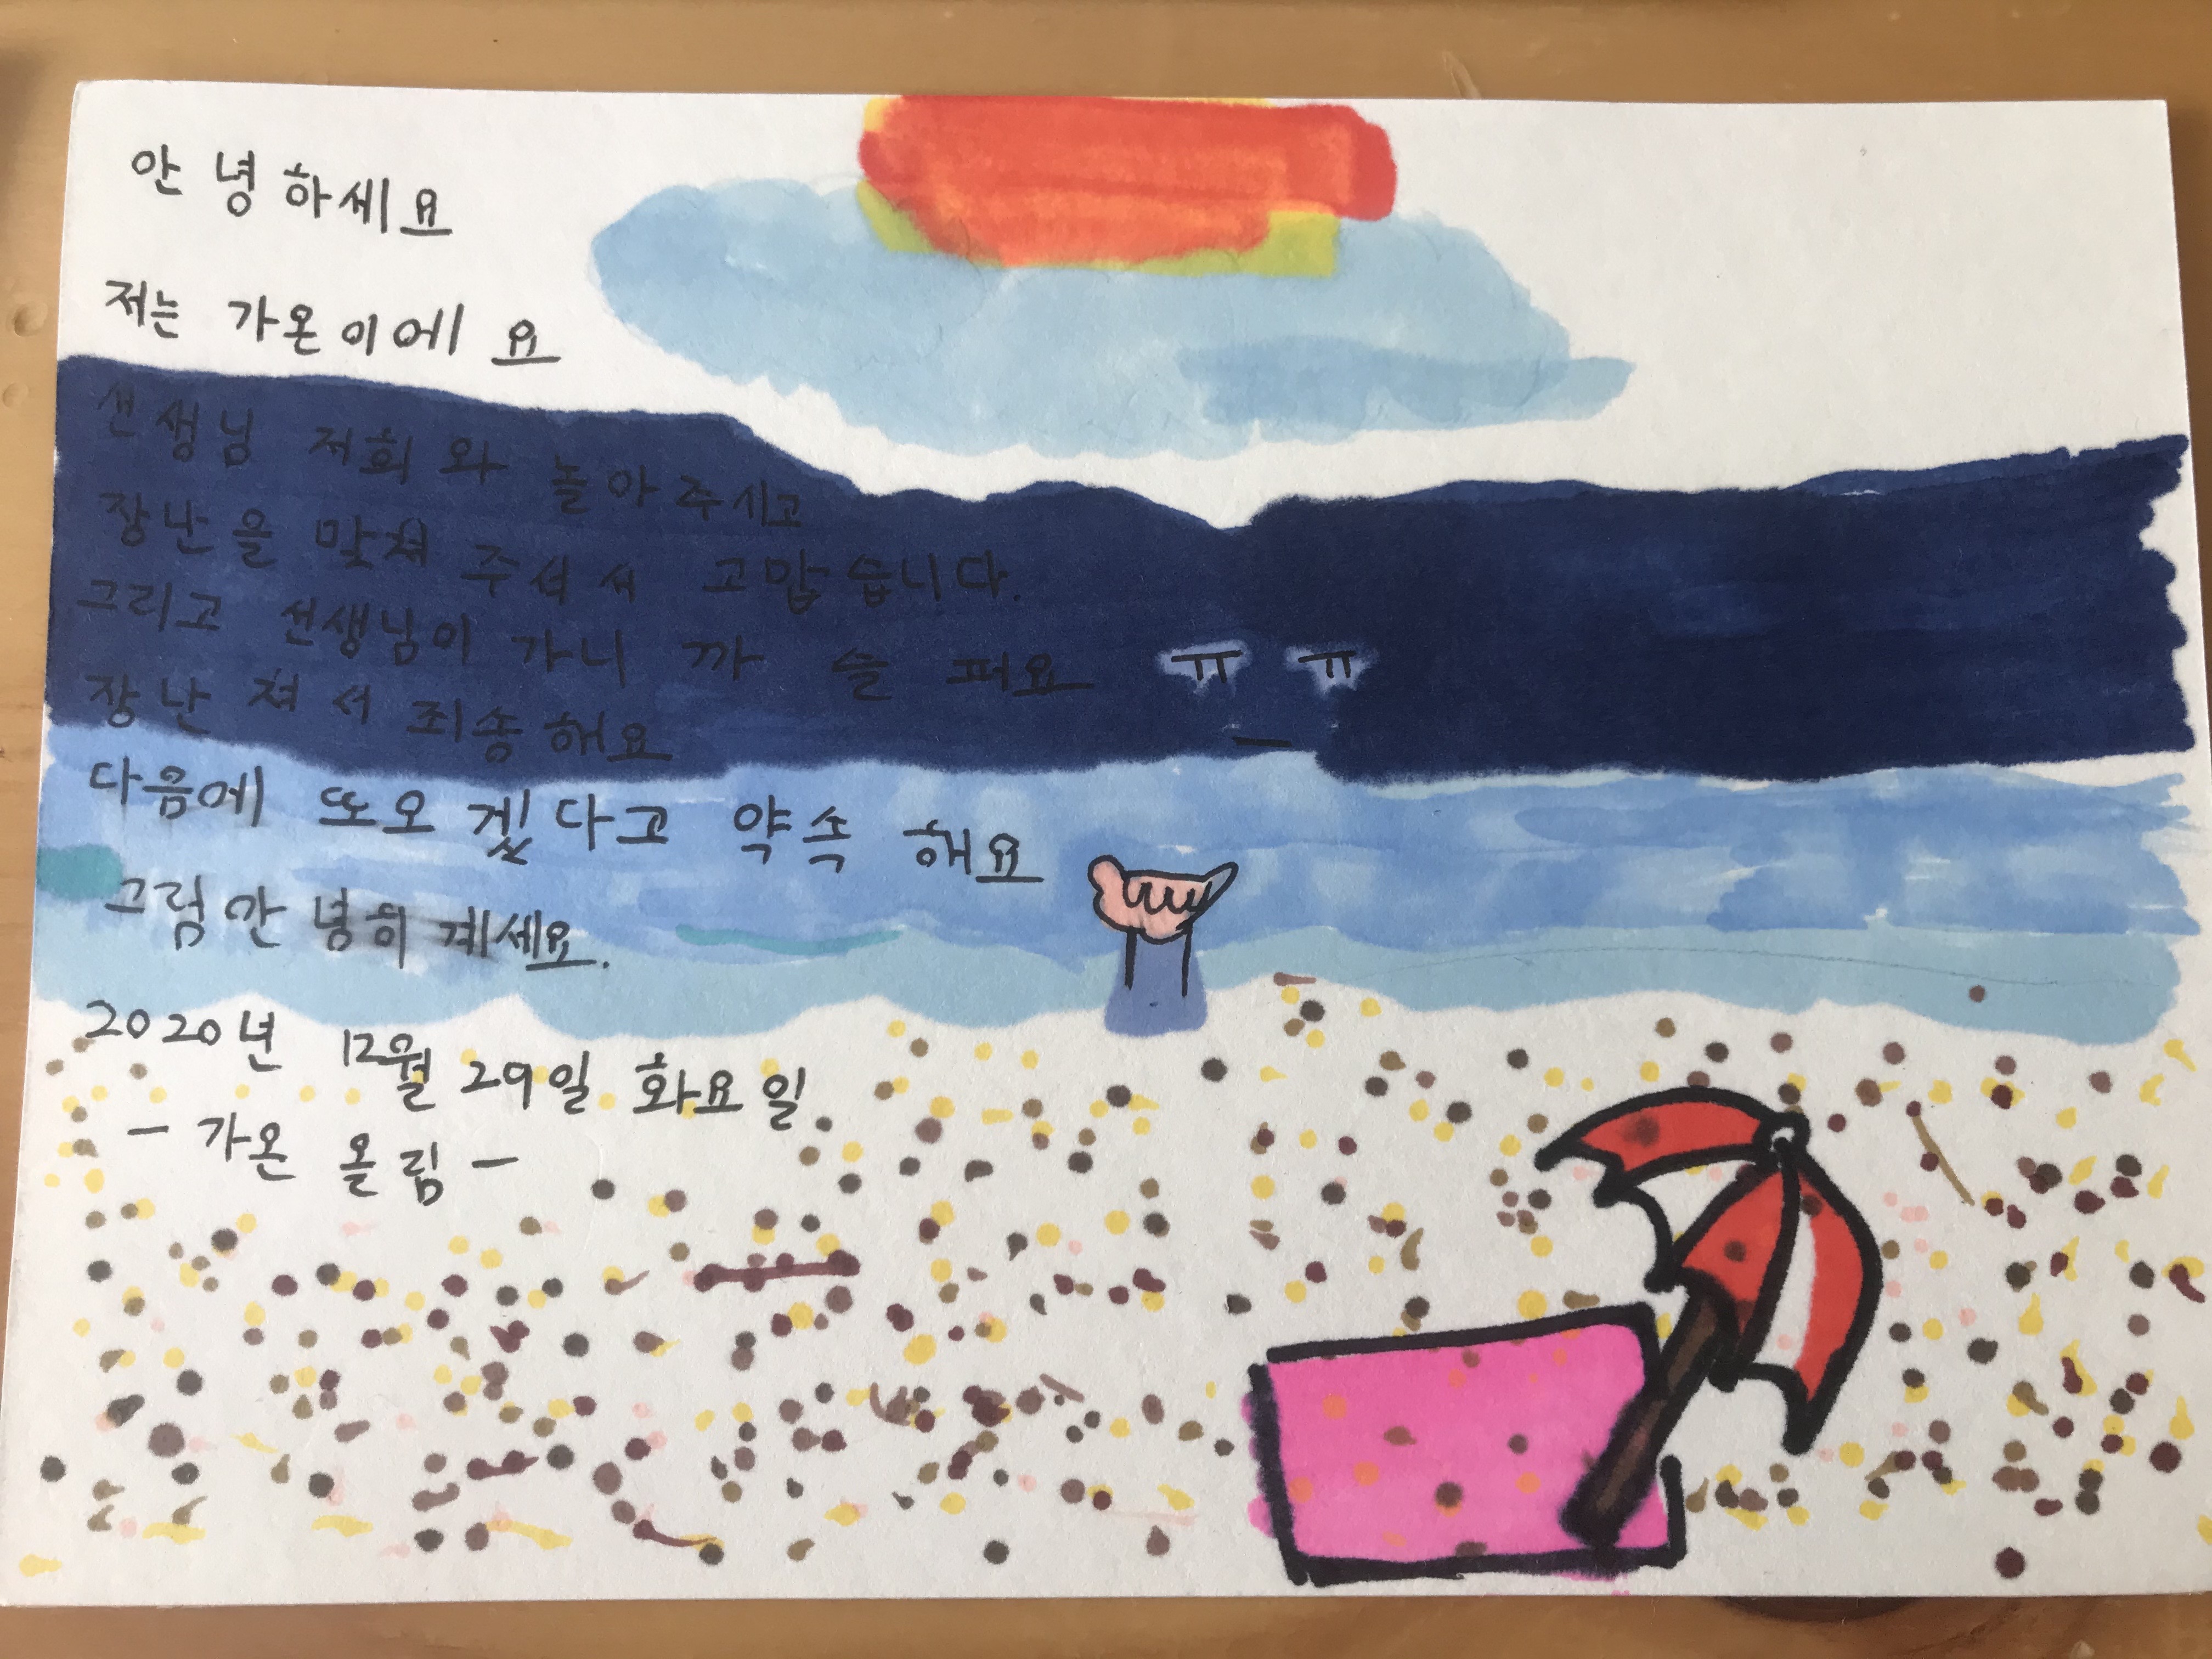 안녕하세요
저는 가온이에요
선생님 저희와 놀아주시고
장난을 맞쳐 주셔서 고맙습니다.
그리고 선생님이 가니까 슬퍼요 ㅠ ㅠ
장난쳐서 죄송해요
다음에 또오겠다고 약속해요
그럼 안녕히 계세요.
2020년 12월 29일 화요일
- 가온 올림 -